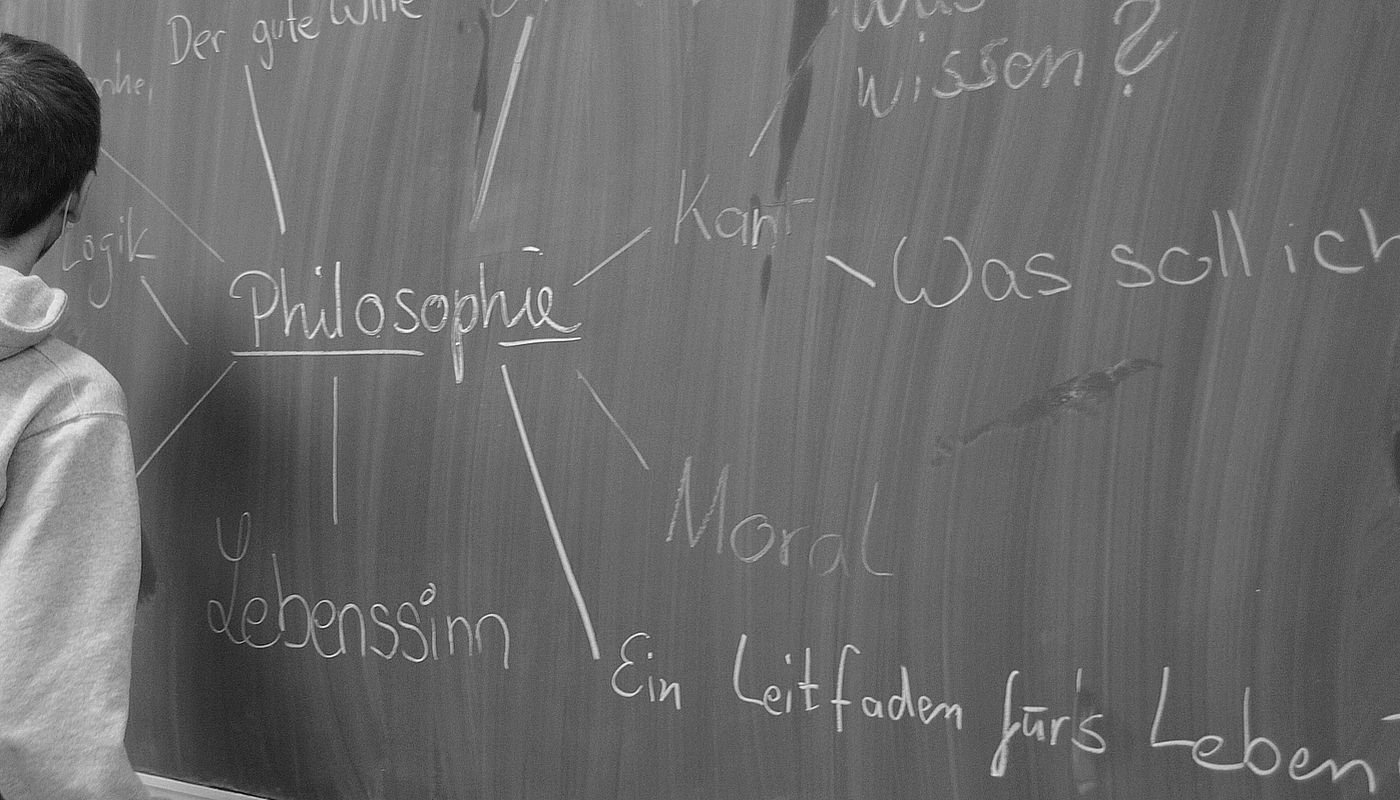 Der gute Wille
Was
wisson?
Logik
Kant
Was soll ich
Philosophie
Moral
Lebenssinn
Ein Leitfaden für's Leben